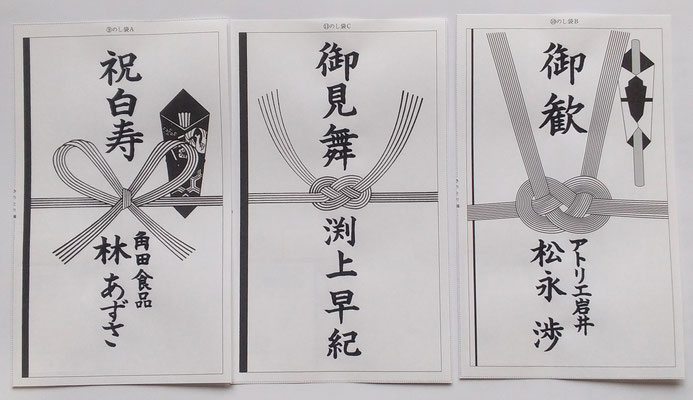 ⑨のし袋A
祝白寿
角田食品
林あずさ
⑪のし袋C
御見舞
渕上早紀
⑩のし袋B
御歓
アトリエ岩井
松永渉